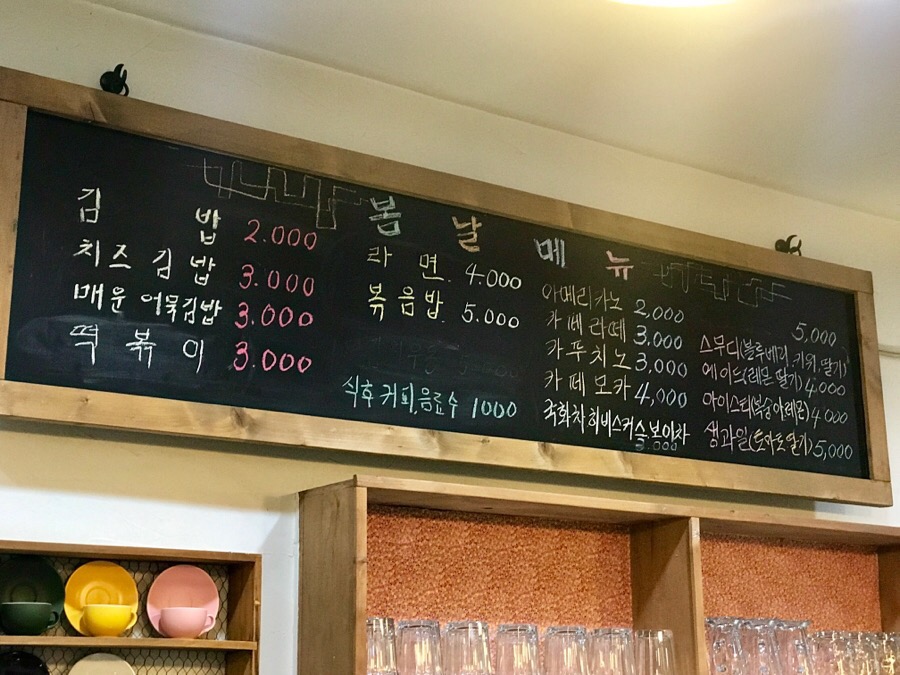 봄날메뉴
김밥 2.000
치즈김밥 3.000
매운어묵김밥 3.000
떡볶이 3.000
라면. 4.000
볶음밥. 5.000
식후 커피,음료수 1000
아메리카노 2,000
카페라떼 3,000
카푸치노 3,000
카페모카 4,000
국화차 히비스커슬보이차
3.000
5,000
스무디(블루베리 키위,딸기)
에이드(레몬 딸기) 4,000
아이스티(복숭아레몬) 4000
생과일(토마토딸기) 5,000